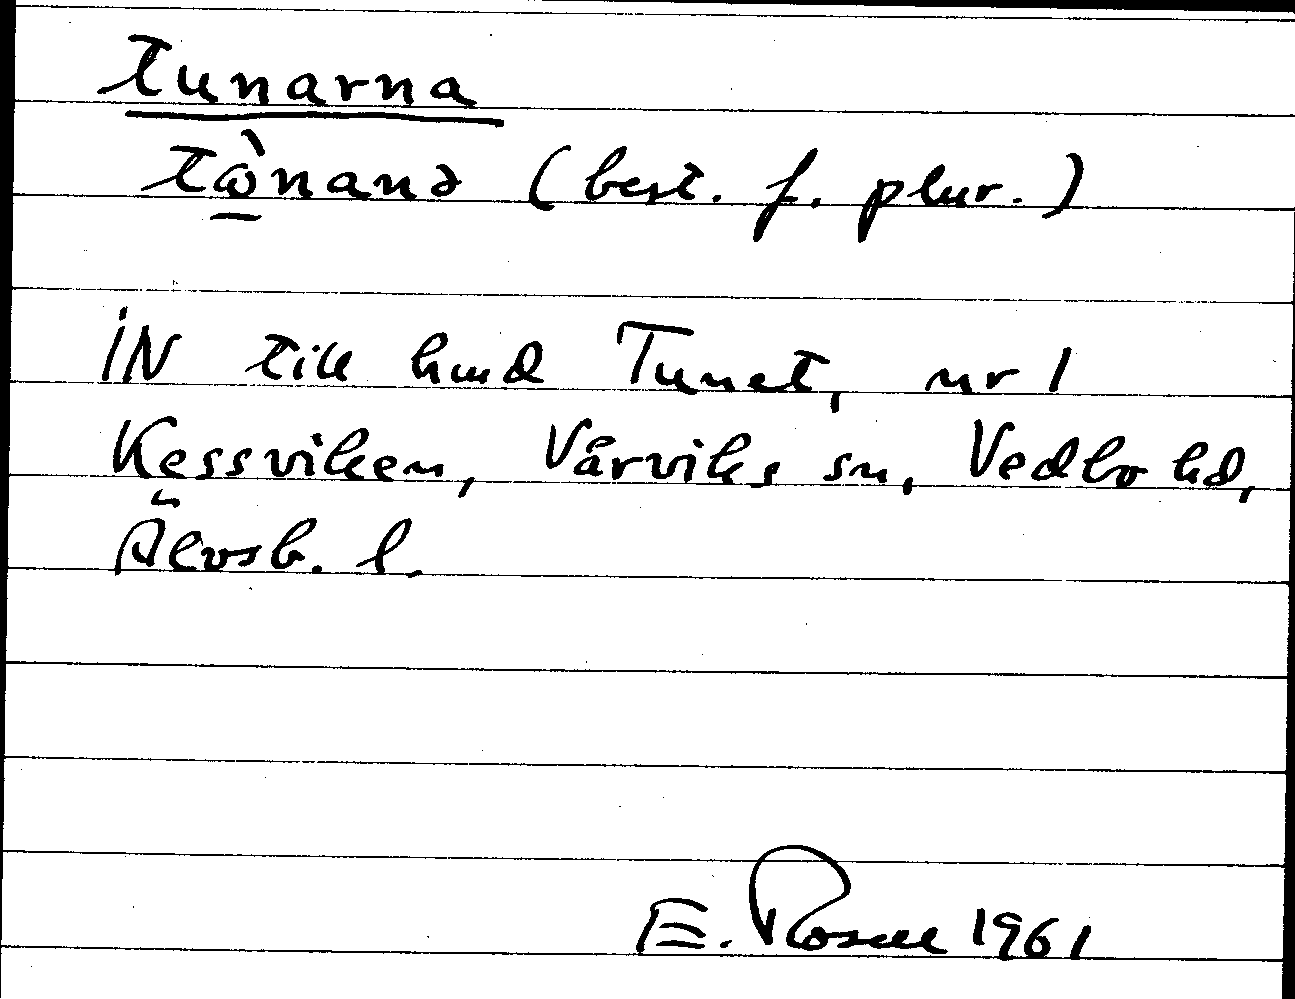 tunarna
tὼ̱nanə (best. f. plur.)
iN till hmd Tunet, nr 1
Kessviken, Vårviks sn, Vedbo hd,
Älvsb. l.
E. Rosell 1961